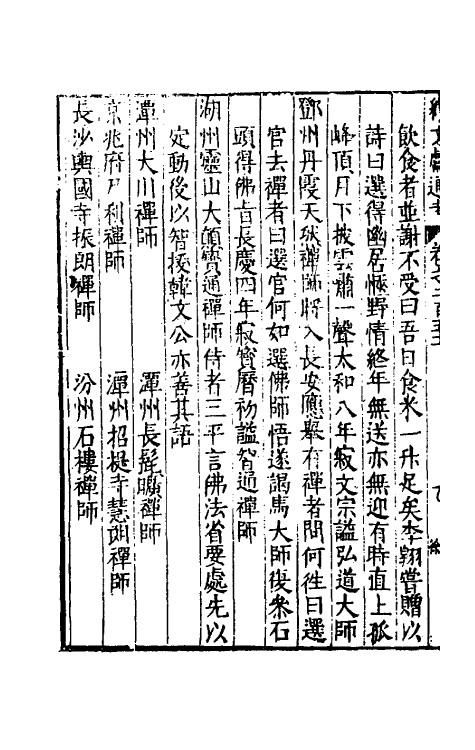 續文獻通考
飲食者並謝不受曰吾日食米一升足矣李翱嘗贈以
詩曰選得幽居愜野情終年無送亦無迎有時直上孤
峰頂月下披雲嘯一聲太和八年寂文宗謚弘道大師
鄧州丹霞天然禪師將入長安應舉有禪者問何徃曰選
官去禪者曰選官何如選佛師悟遂謁馬大師復參石
頭得佛旨長慶四年寂寳曆初謚智通禪師
湖州靈山大顛寳通禪師侍者三平言佛法省要處先以
定動後以智拔韓文公亦善其語
潭州大川禪師 潭州長髭曠禪師
京兆府尸利禪師 潭州招提寺慧朗禪師
長沙興國寺振朗禪師 汾州石樓禪師